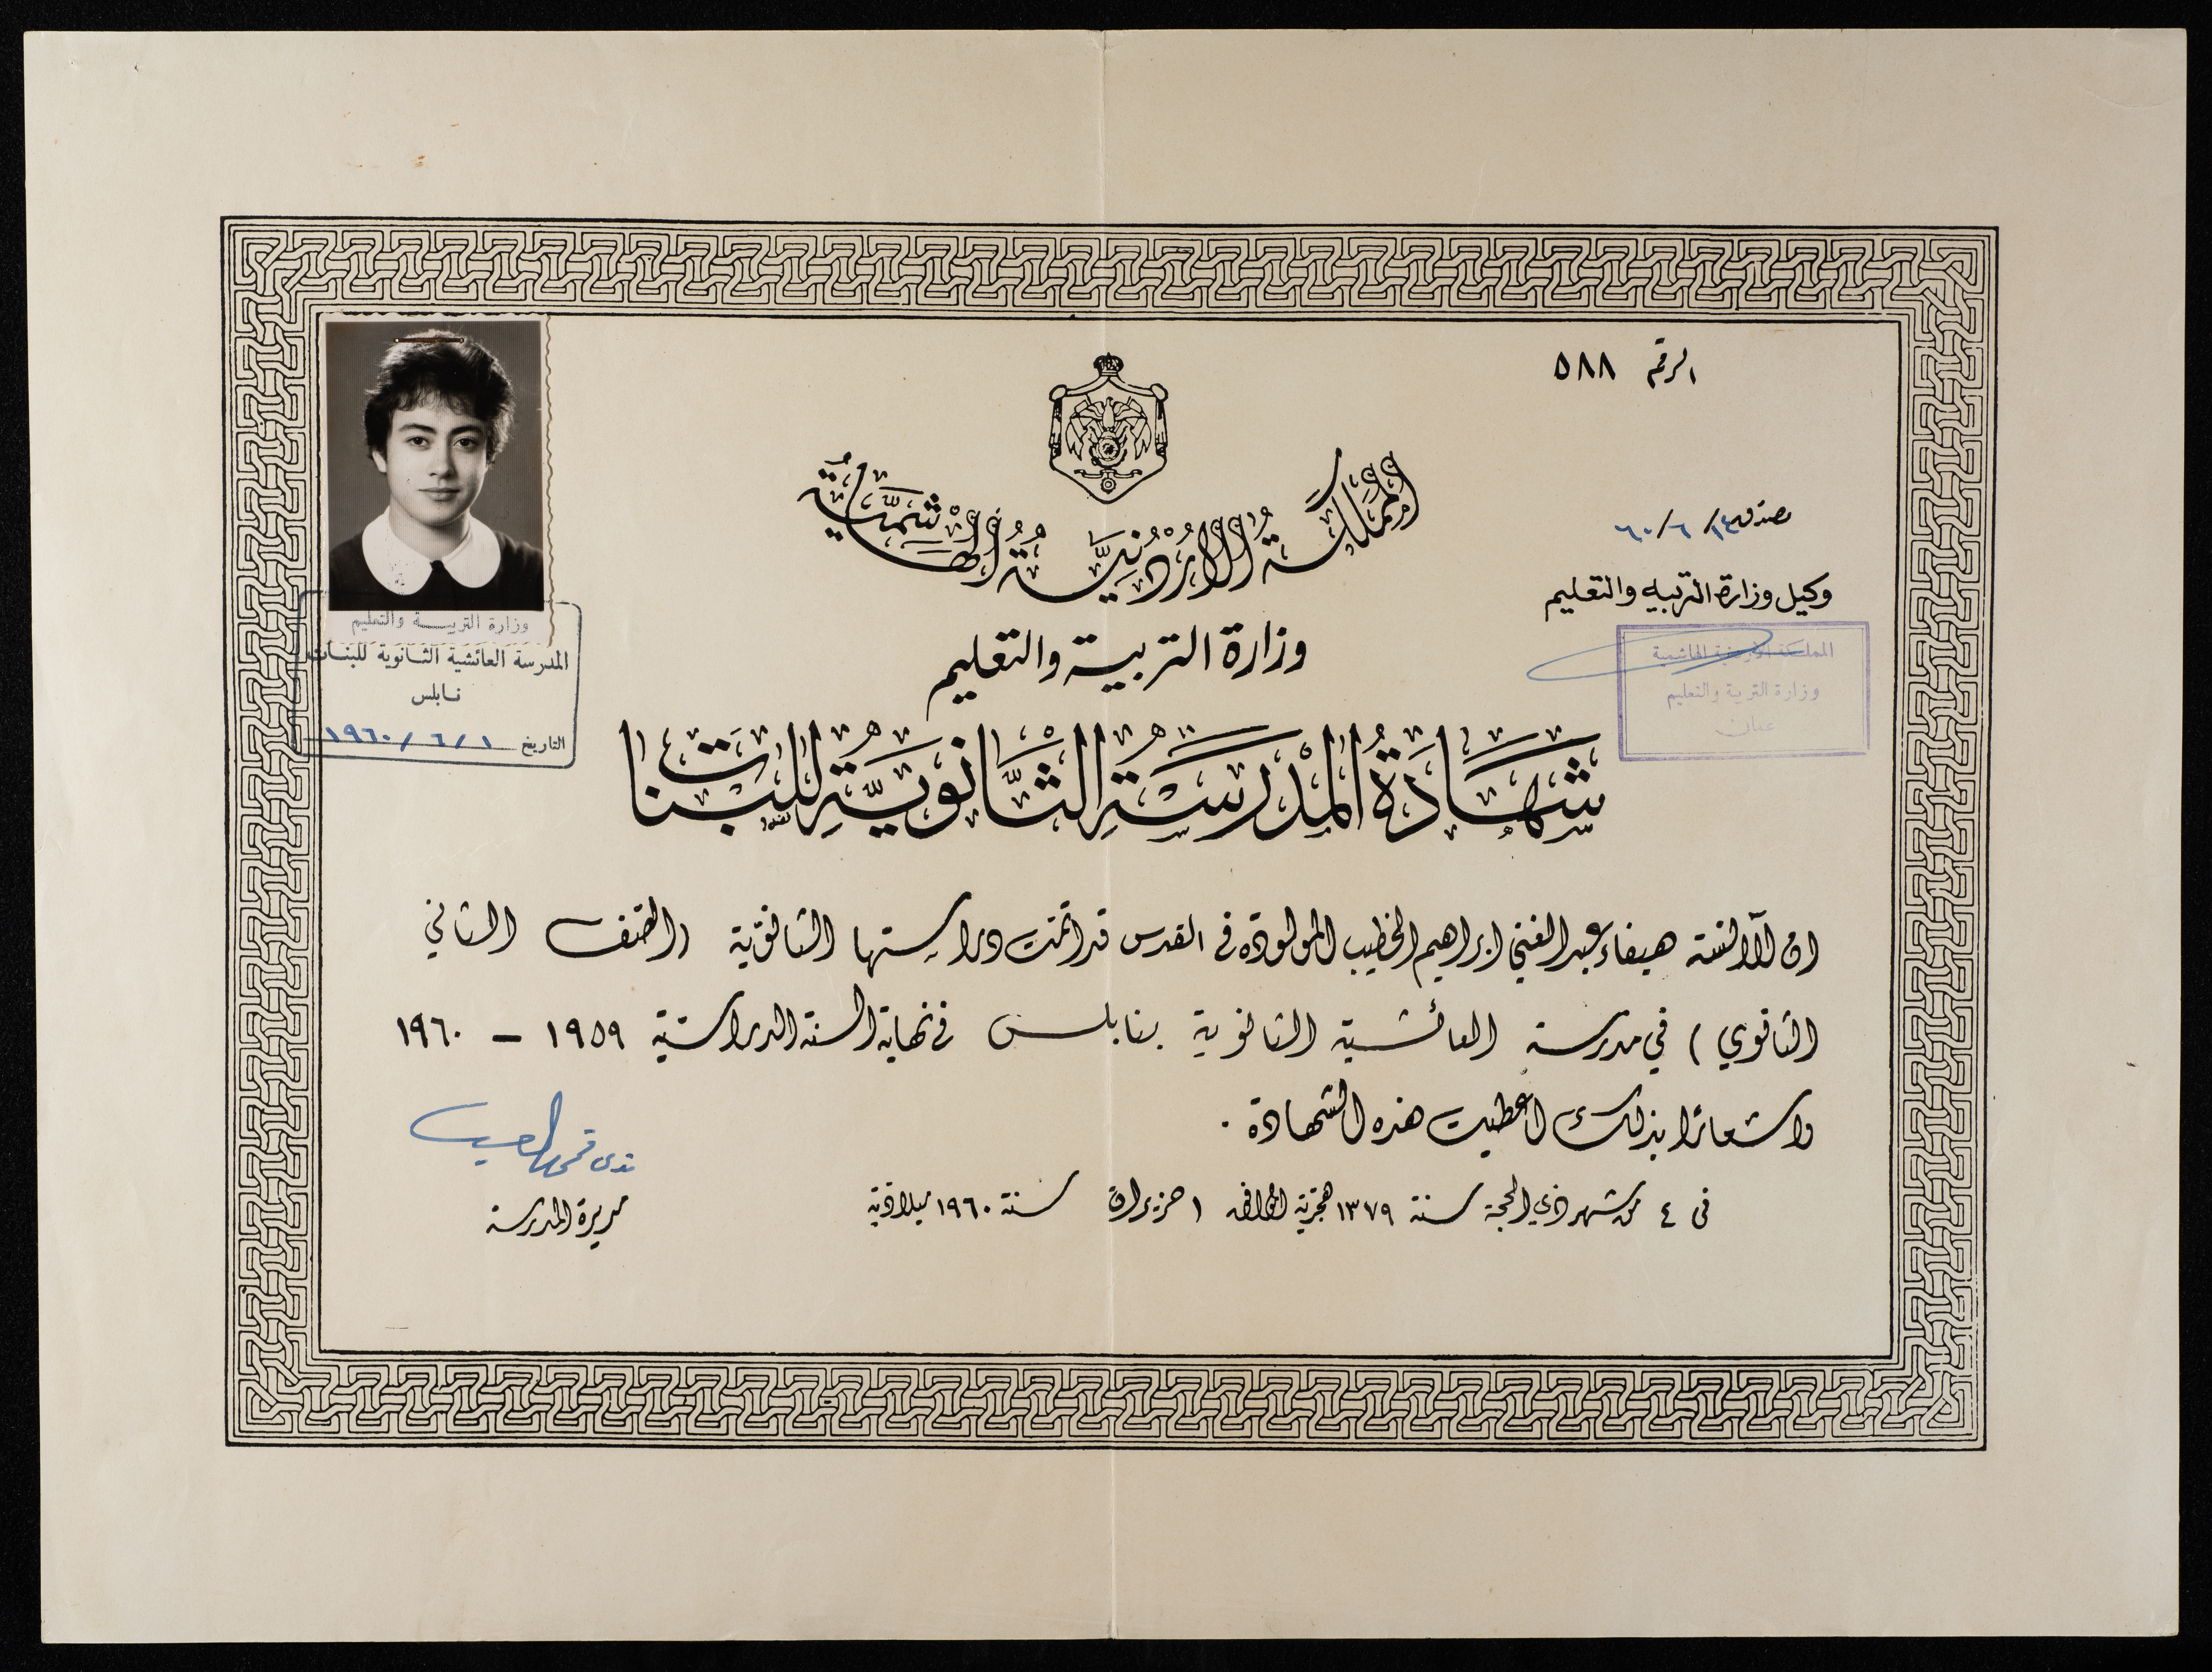 الرقم ٥٨٨
المملكة الاردنية الهاشمية
مصدق ١٤/٦/٦٠
وكيل وزارة التربيه والتعليم
المملكة الاردنية الهاشمية
وزارة التربية والتعليم
عمان
وزارة التربية والتعليم
وزارة التربيـــة والتعليم
المدرسة العائشية الثانوية للبنات
نابلس
التاريخ ١/٦/١٩٦٠
شَهَادَةُ المَدْرَسَةِ الثَّانَوِيَّةِ لِلبَنَات
ان الآنسة هيفاء عبد الغني ابراهيم الخطيب المولودة في القدس قد اتمت دراستها الثانوية (الصف الثاني
الثانوي) في مدرسة العائشية الثانوية بنابلس في نهاية السنة الدراسية ١٩٥٩ – ١٩٦٠
واشعارا بذلك اعطيت هذه الشهادة .
في ٤ من شهر ذي الحجة سنة ١٣٧٩ هجرية الموافق ١ حزيران سنة ١٩٦٠ ميلادية
مديرة المدرسة